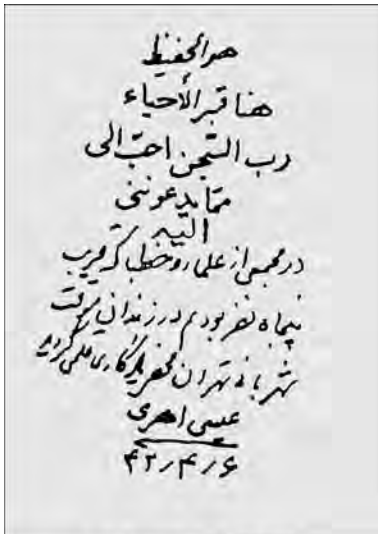 هو الحفیظ
هنا قبر الأحیاء
رب السّجن احبّ الی
ممّا یدعوننی
الیه
در مجمعی از علما و خطبا که قریب
پنجاه نفر بودیم در زندان موقت
شهربانی تهران بیادگاری قلمی گردید
عیسی اهری
۴۲/۴/۶